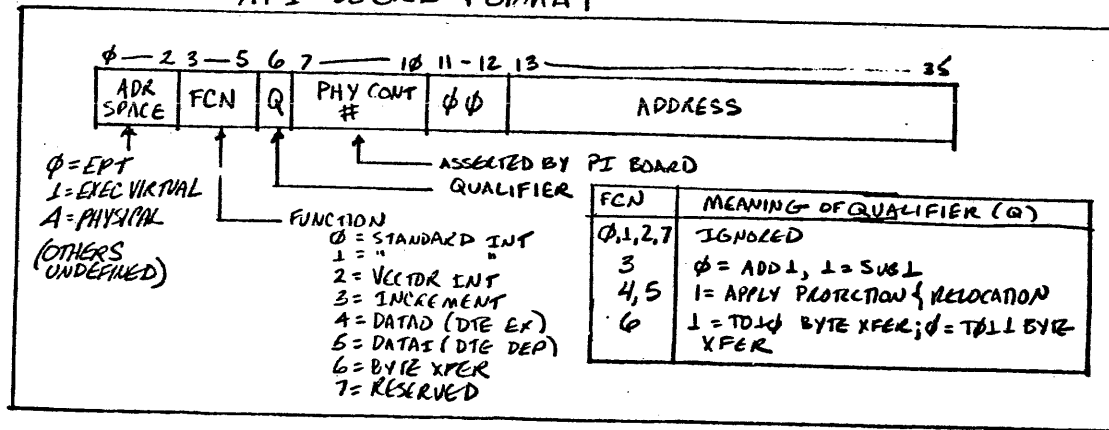 API WORD FORMAT
φ — 2 3 — 5 6 7 —— 1φ 11 - 12 13 —— 35
ADR SPACE FCN Q PHY CONT # φφ ADDRESS
φ = EPT
1 = EXEC VIRTUAL
4 = PHYSICAL
(OTHERS UNDEFINED)
ASSERTED BY PI BOARD
QUALIFIER
FUNCTION
φ = STANDARD INT
1 = " "
2 = VECTOR INT
3 = INCREMENT
4 = DATAO (DTE EX)
5 = DATAI (DTE DEP)
6 = BYTE XFER
7 = RESERVED
FCN MEANING OF QUALIFIER (Q)
φ,1,2,7 IGNORED
3 φ = ADD 1, 1 = SUB 1
4,5 1 = APPLY PROTECTION & RELOCATION
6 1 = TO1φ BYTE XFER; φ = TO11 BYTE
XFER